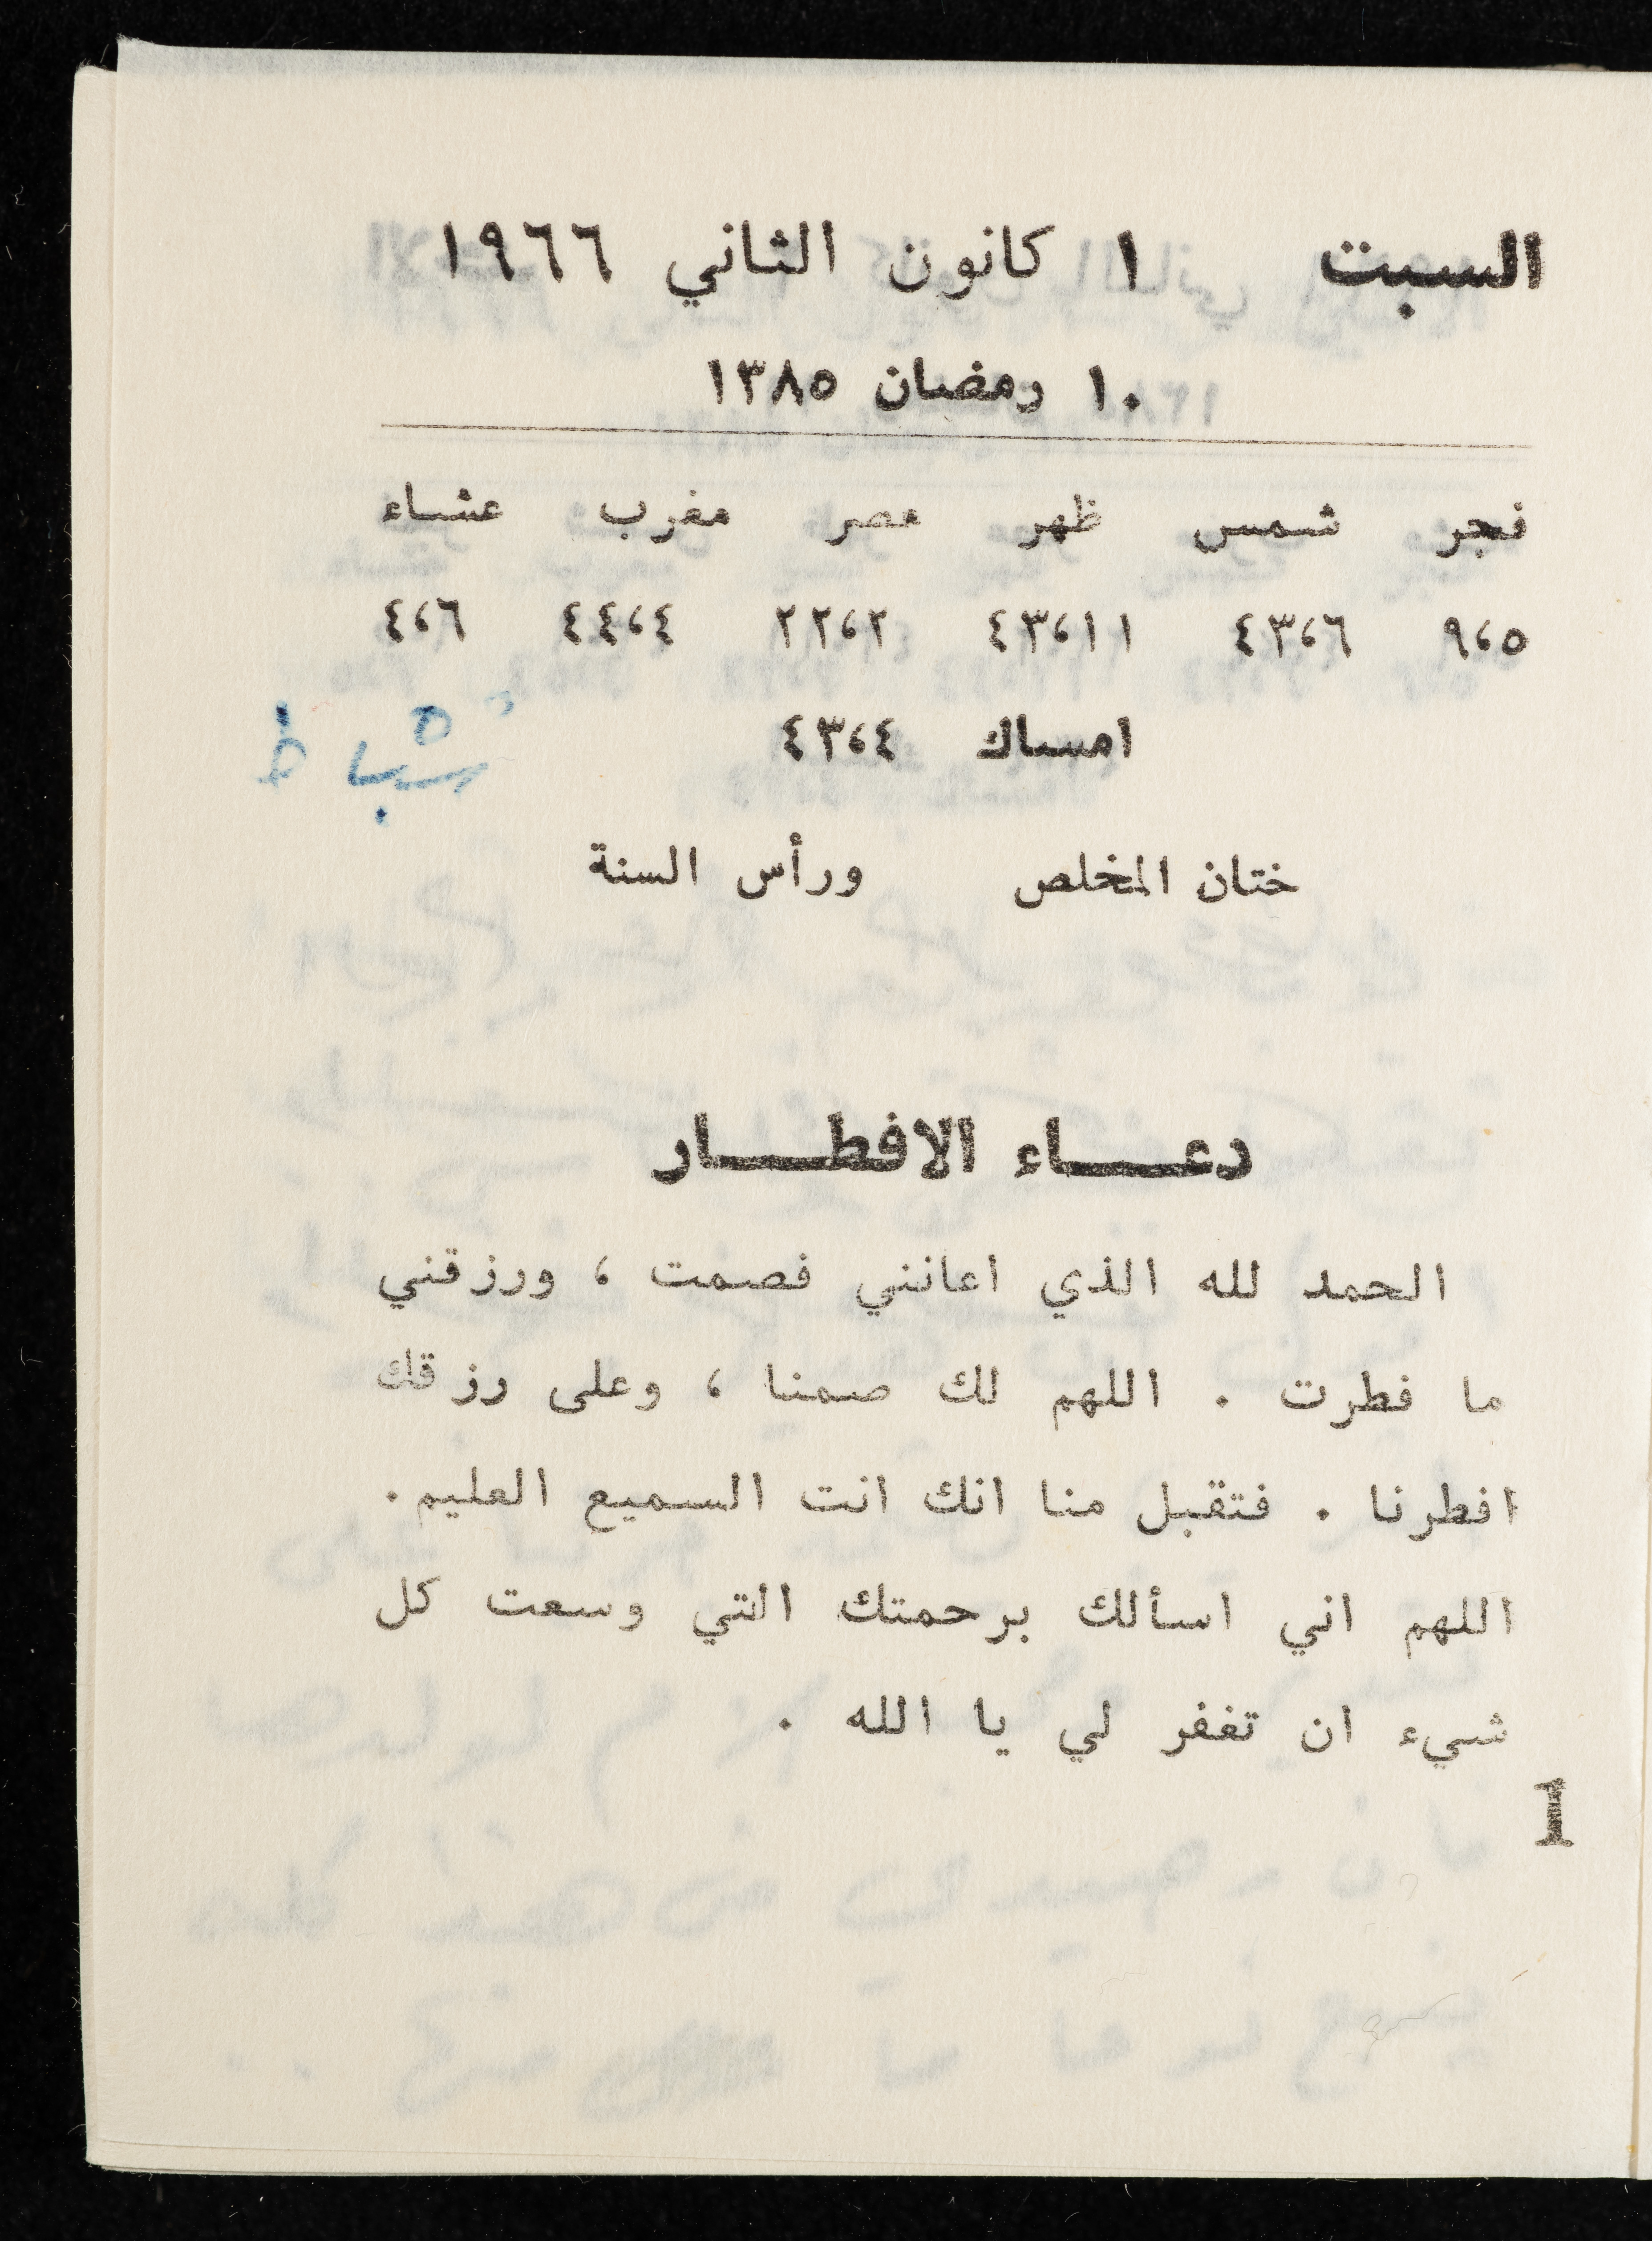 السبت ١ كانون الثاني ١٩٦٦
١٠ رمضان ١٣٨٥
فجر شمس ظهر عصر مغرب عشاء
٩،٥ ٤٣،٦ ٤٣،١١ ٢٢،٢ ٤٤،٤ ٤،٦
امساك ٤٣،٤
شباط
ختان المخلص ورأس السنة
دعـــاء الافطـــار
الحمد لله الذي اعانني فصمت ، ورزقني
ما فطرت . اللهم لك صمنا ، وعلى رزقك
افطرنا . فتقبل منا انك انت السميع العليم.
اللهم اني اسألك برحمتك التي وسعت كل
شيء ان تغفر لي يا الله .
1